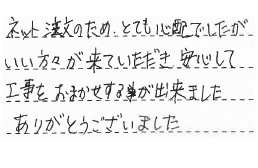 ネット注文のため、とても心配でしたが
いい方々が来ていただき 安心して
工事を おまかせする事が出来ました
ありがとうございました